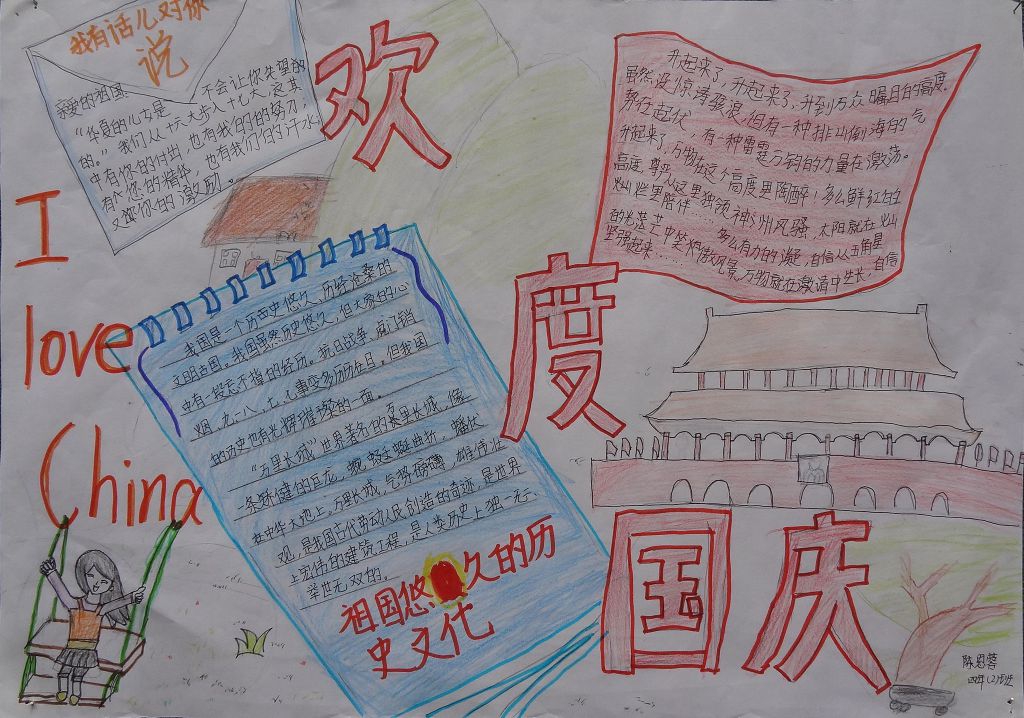 我有话儿对你
说
亲爱的祖国:
"华夏的儿女是不会让你失望的
的。"我们从十六大步入十七大,这其
中有你的付出,也有我们的努力,
有您的精体,也有我们的汗水
又您你的激励。
欢
度
国庆
I
love
China
升起来了,升起来了,升到万众瞩目的高度.
虽然没惊涛骇浪,但有一种排山倒海的气
势在起伏,有一种雷霆万钧的力量在激荡。
升起来了,万物在这个高度里陶醉!多么鲜红的
高度,尊严从这里独领神州风骚,太阳就在灿
灿烂里陪伴……多么有力的凝
的光芒中笑怀傲风景,万物就在激请中生长,自信
坚强起来……自信从五角星
我国是一个历史悠久、历经沧桑的
文明古国。我国虽然历史悠久,但大家的心
中有一段忘不掉的经历。抗日战争、虎门销
烟、九·一八、七·七事变多历历在目。但我国
的历史也有光辉璀璨的一面。
"万里长城"世界著名的万里长城,像
一条矫健的巨龙,蜿蜒曲折,蟠伏
在中华大地上。万里长城,气势磅礴,雄伟壮
观,是我国古代劳动人民创造的奇迹,是世界
上宏伟的建筑工程,是人类历史上独一无二
举世无双的。
祖国悠久的历
史文化
陈思蓉
四年(2)班